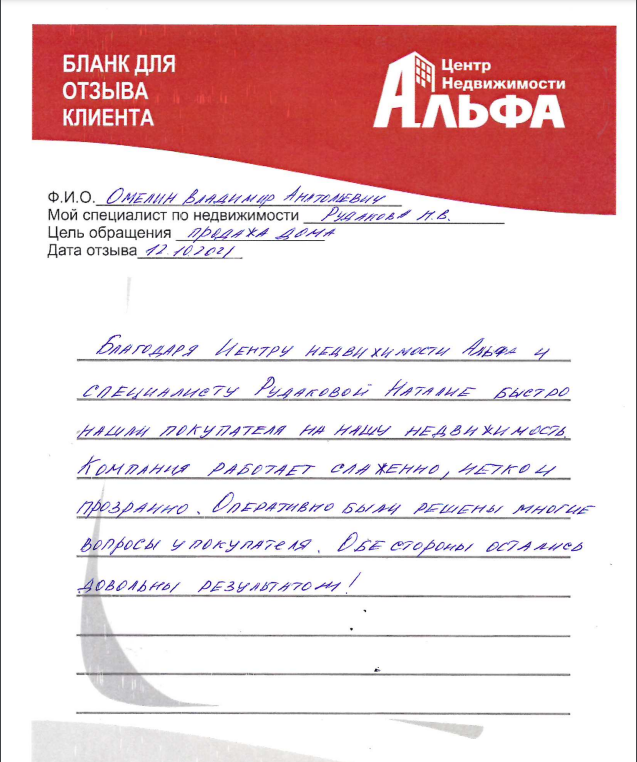 БЛАНК ДЛЯ
ОТЗЫВА
КЛИЕНТА
Центр
Недвижимости
АЛЬФА
Ф.И.О. Омелин Владимир Анатольевич
Мой специалист по недвижимости Рудакова Н.В.
Цель обращения продажа дома
Дата отзыва 12.10.2021
Благодаря Центру недвижимости Альфа и
специалисту Рудаковой Наталие быстро
нашли покупателя на нашу недвижимость.
Компания работает слаженно, четко и
прозрачно. Оперативно были решены многие
вопросы у покупателя. Обе стороны остались
довольны результатом!